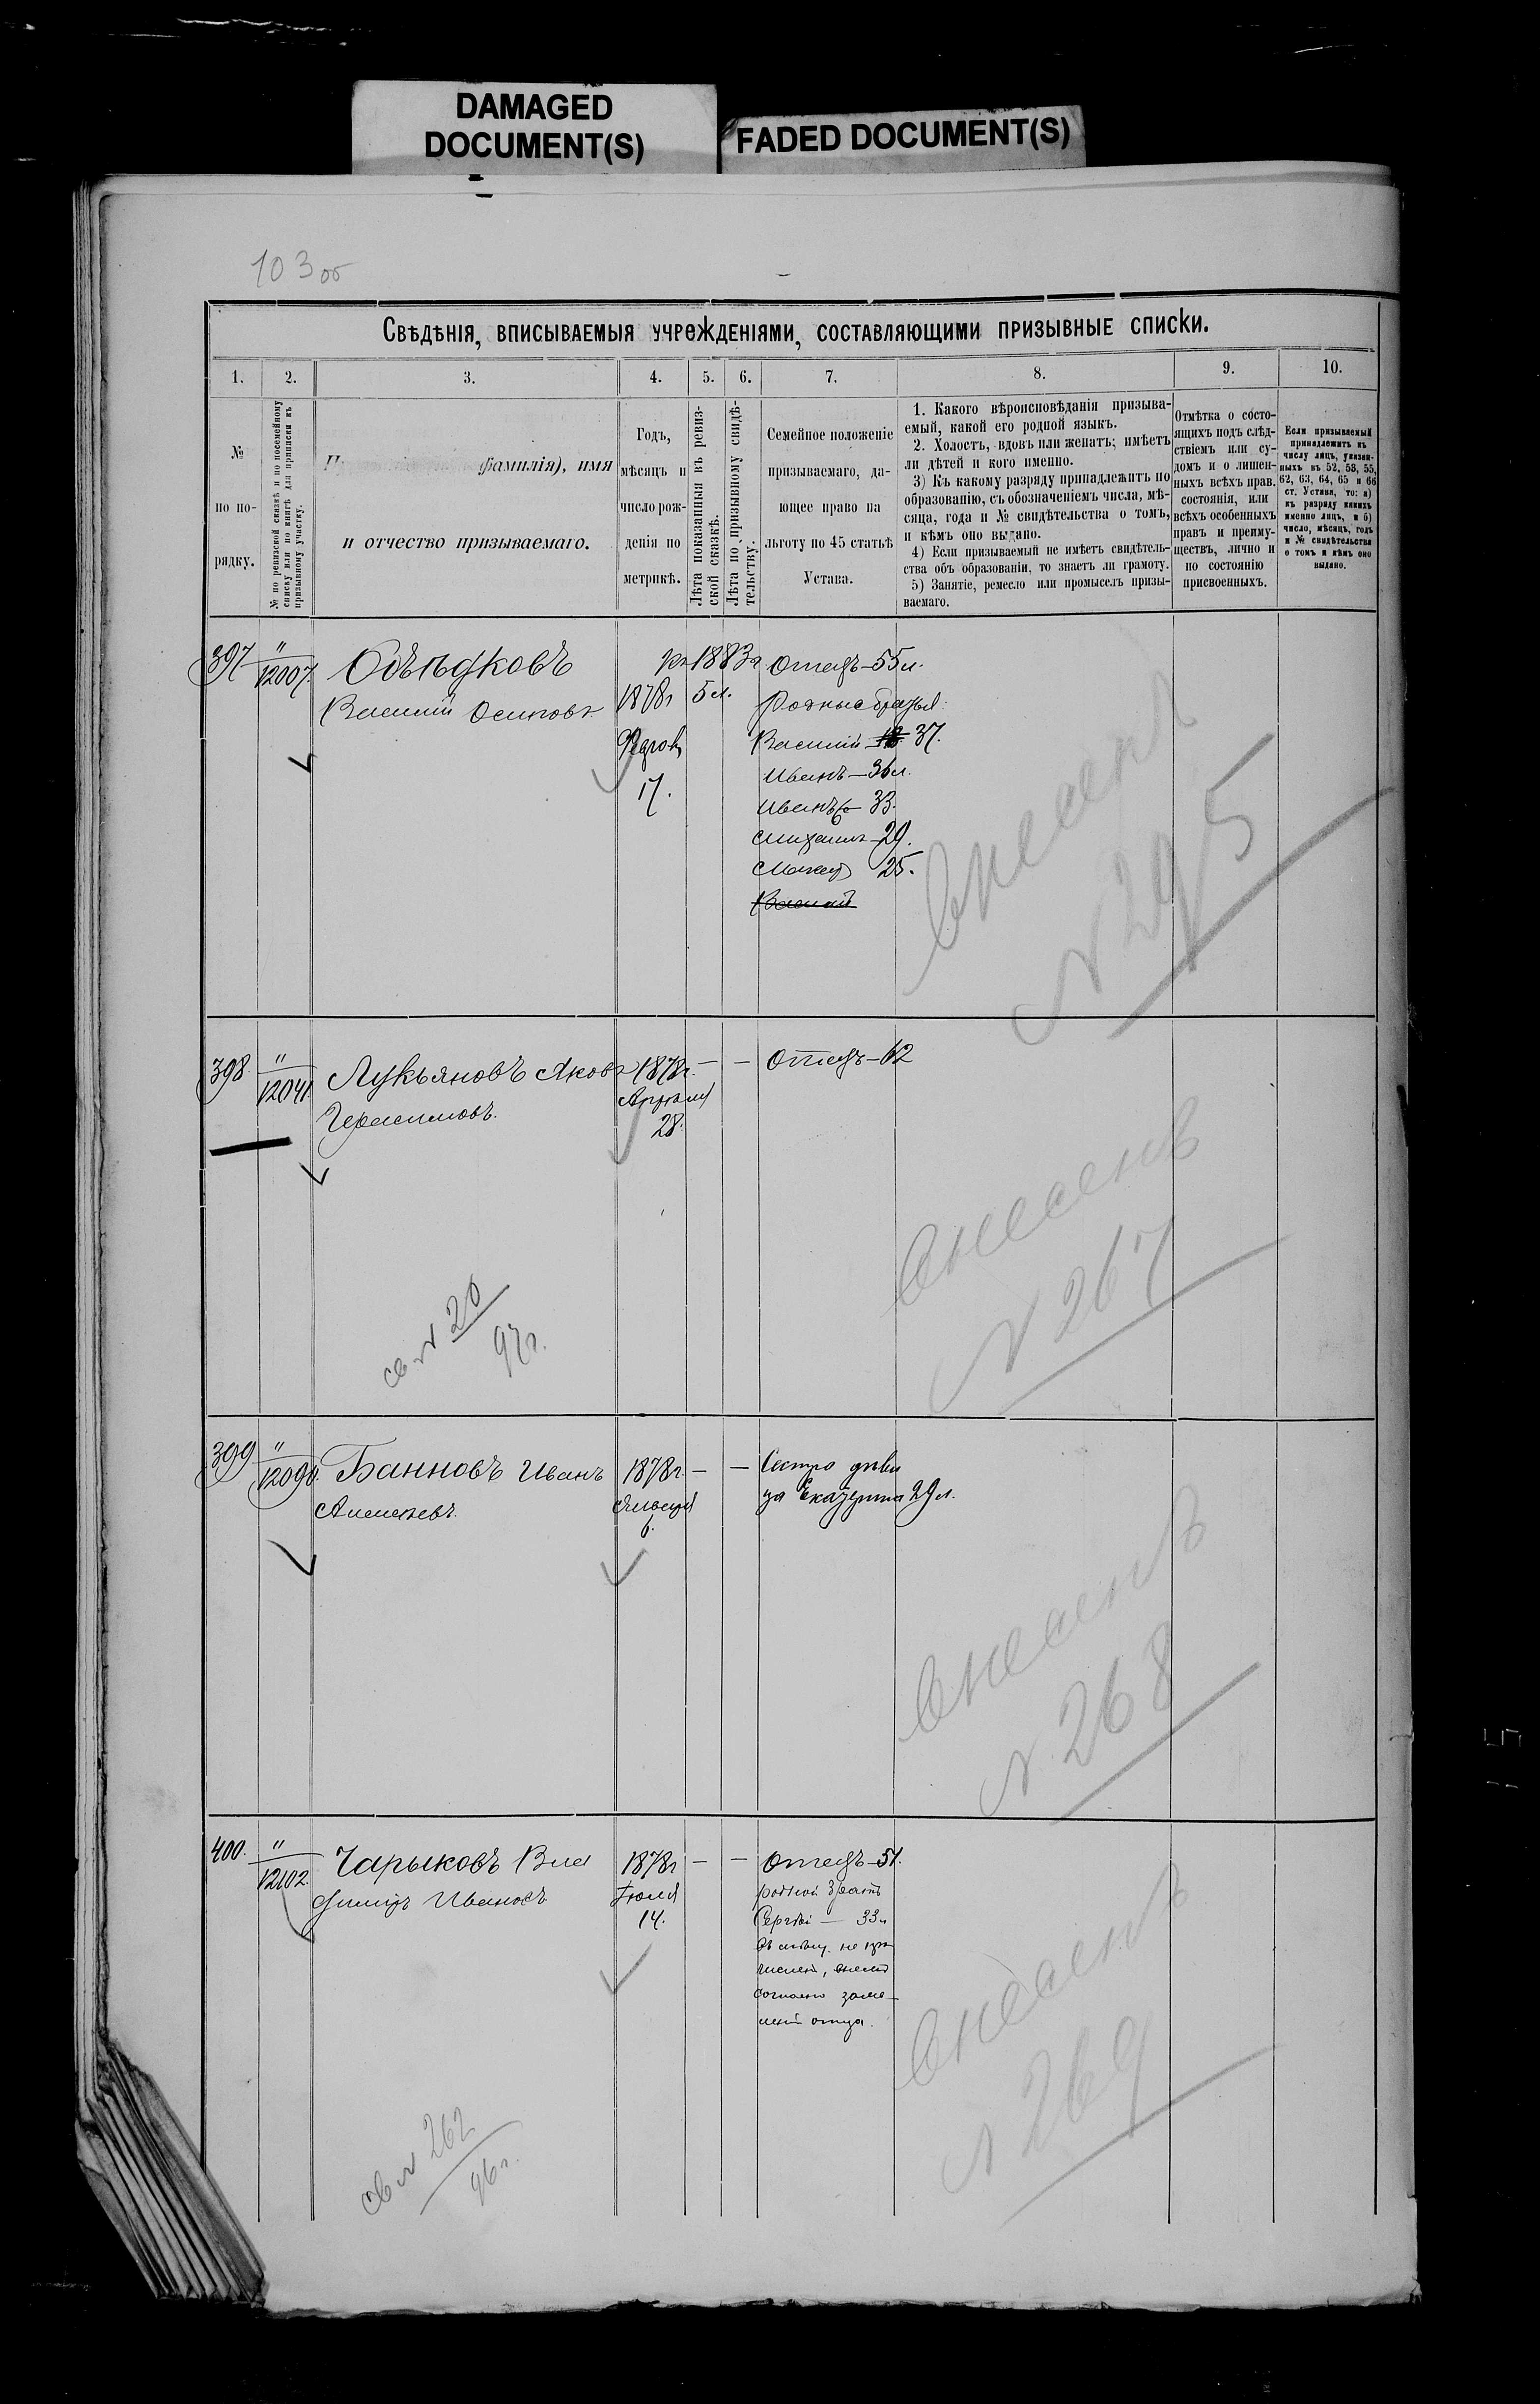 DAMAGED
DOCUMENT(S)
FADED DOCUMENT(S)
103 об
Свѣдѣнія, вписываемыя учрежденіями, составляющими призывные списки.
1. 2. 3. 4. 5. 6. 7. 8. 9. 10.
№
по по-
рядку.
№ по ревизской сказкѣ и по посемейному
списку или по книгѣ для приписки къ
призывному участку.
фамилія), имя
и отчество призываемаго.
Годъ,
мѣсяцъ и
число рож-
денія по
метрикѣ.
Лѣта показанныя въ ревиз-
ской сказкѣ.
Лѣта по призывному свидѣ-
тельству.
Семейное положеніе
призываемаго, да-
ющее право на
льготу по 45 статьѣ
Устава.
1. Какого вѣроисповѣданія призыва-
емый, какой его родной языкъ.
2. Холостъ, вдовъ или женатъ; имѣетъ
ли дѣтей и кого именно.
3) Къ какому разряду принадлежитъ по
образованію, съ обозначеніемъ числа, мѣ-
сяца, года и № свидѣтельства о томъ,
и кѣмъ оно выдано.
4) Если призываемый не имѣетъ свидѣтель-
ства объ образованіи, то знаетъ ли грамоту.
5) Занятіе, ремесло или промыселъ призы-
ваемаго.
Отмѣтка о состо-
ящихъ подъ слѣд-
ствіемъ или су-
домъ и о лишен-
ныхъ всѣхъ прав.
состоянія, или
всѣхъ особенныхъ
правъ и преиму-
ществъ, лично и
по состоянію
присвоенныхъ.
Если призываемый
принадлежитъ къ
числу лицъ, указан-
ныхъ въ 52, 53, 55,
62, 63, 64, 65 и 66
ст. Устава, то: а)
къ разряду какихъ
именно лицъ, и б)
число, мѣсяцъ, годъ
и № свидѣтельства
о томъ и кѣмъ оно
выдано.
397 " 12007.
Василій Осиповъ
1883г
1878г 5 л.
17.
Отецъ—55л.
Родные братья:
Василій 37.
Иванъ—36л.
Иванъ 33.
Михаилъ—29.
25.
Василій
Внесенъ
N 295
398 " 12041
Лукьяновъ Яковъ
Герасимовъ.
1878г. — —
Апрѣля
28.
Отецъ—62
Внесенъ
N 267
св. N 20
97г.
399 " 12090.
Банновъ Иванъ
Алексѣевъ.
1878г. — —
6.
Сестра дѣви
ца Екатерина 29л.
Внесенъ
N 268
400. " 12102.
Чарыковъ Вла
диміръ Ивановъ
1878г — —
Іюля
14.
Отецъ—51.
родной братъ
Сергѣй — 33л
согласно заяв-
ленія отца.
Внесенъ
N 269
св N 262
96г.